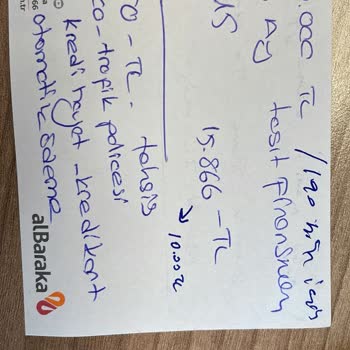 000 TL / 120 bin için
Ay taşıt finansmanı
15.866 - TL
↘ 10.00 TL
0 - TL. tahsis
co - trafik poliçesi
kredi hayat - kredi kart
otomatik ödeme
alBaraka